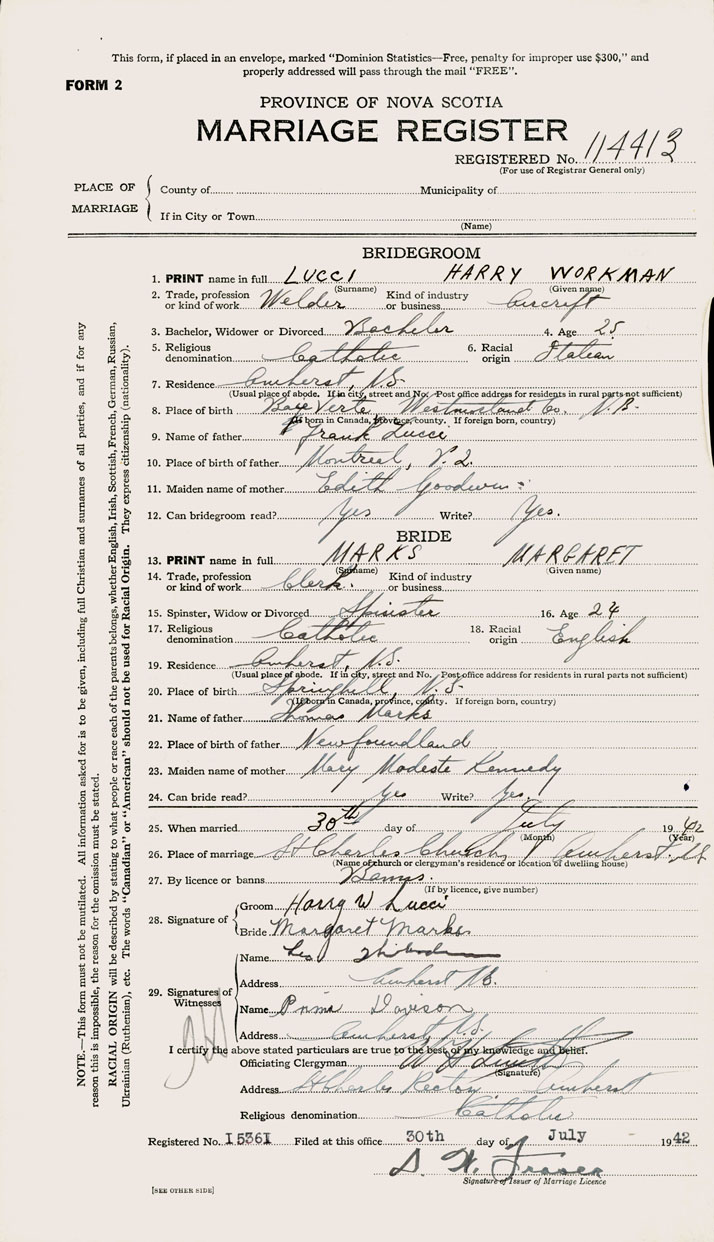 This form, if placed in an envelope, marked "Dominion Statistics—Free, penalty for improper use $300," and
properly addressed will pass through the mail "FREE".
FORM 2
PROVINCE OF NOVA SCOTIA
MARRIAGE REGISTER
REGISTERED No. 114413
(For use of Registrar General only)
PLACE OF MARRIAGE
County of Municipality of
If in City or Town
(Name)
BRIDEGROOM
1. PRINT name in full LUCCI HARRY WORKMAN
(Surname) (Given name)
2. Trade, profession or kind of work Welder Kind of industry or business Aircraft
3. Bachelor, Widower or Divorced Bachelor 4. Age 25
5. Religious denomination Catholic 6. Racial origin Italian
7. Residence Amherst, N.S.
(Usual place of abode. If in city, street and No. Post office address for residents in rural parts not sufficient)
8. Place of birth Baye Verte, Westmorland Co. N.B.
(If born in Canada, province, county. If foreign born, country)
9. Name of father Frank Lucci
10. Place of birth of father Montreal, P.Q.
11. Maiden name of mother Edith Goodwin
12. Can bridegroom read? Yes Write? Yes.
BRIDE
13. PRINT name in full MARKS MARGARET
(Surname) (Given name)
14. Trade, profession or kind of work Clerk. Kind of industry or business
15. Spinster, Widow or Divorced Spinster 16. Age 24
17. Religious denomination Catholic 18. Racial origin English
19. Residence Amherst, N.S.
(Usual place of abode. If in city, street and No. Post office address for residents in rural parts not sufficient)
20. Place of birth Springhill, N.S.
(If born in Canada, province, county. If foreign born, country)
21. Name of father Thomas Marks
22. Place of birth of father Newfoundland
23. Maiden name of mother Mary Modeste Kennedy
24. Can bride read? Yes Write? Yes,
25. When married 30th day of July 1942
(Month) (Year)
26. Place of marriage St Charles Church, Amherst, N.S.
(Name of church or clergyman's residence or location of dwelling house)
27. By licence or banns Banns.
(If by licence, give number)
28. Signature of
Groom Harry W Lucci
Bride Margaret Marks
29. Signatures of Witnesses
Name Leo
Address Amherst N.S.
Name Davison
Address Amherst, N.S.
I certify the above stated particulars are true to the best of my knowledge and belief.
Officiating Clergyman
(Signature)
Address St Charles Rectory Amherst
Religious denomination Catholic
Registered No. 15361 Filed at this office 30th day of July 1942
Signature of Issuer of Marriage Licence
[SEE OTHER SIDE]
NOTE.—This form must not be mutilated. All information asked for is to be given, including full Christian and surnames of all parties, and if for any
reason this is impossible, the reason for the omission must be stated.
RACIAL ORIGIN will be described by stating to what people or race each of the parents belongs, whether English, Irish, Scottish, French, German, Russian,
Ukrainian (Ruthenian), etc. The words "Canadian" or "American" should not be used for Racial Origin. They express citizenship (nationality).